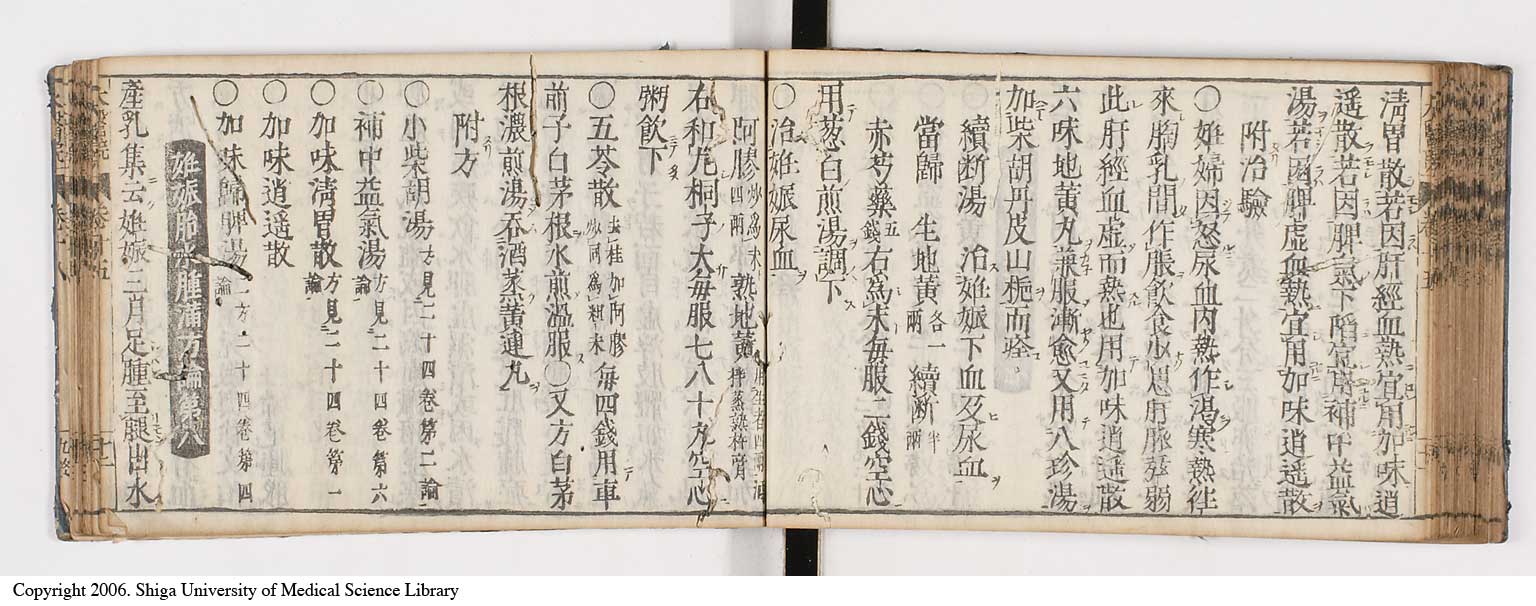 清胃散若因肝經血熱宜用加味逍
遙散若因脾氣下陷宜用補中益氣
湯若因脾虛血熱宜用加味逍遙散
附治驗
○姙婦因怒尿血內熱作渴寒熱徃
來胸乳間作脹飲食少思肝脉弦弱
此肝經血虛而熱也用加味逍遙散
六味地黃丸兼服漸愈又用八珍湯
加柴胡丹皮山梔而痊
續斷湯 治姙娠下血及尿血
當歸 生地黃各一兩 續斷半兩
赤芍藥五錢右為末每服二錢空心
用葱白煎湯調下
○治姙娠尿血
阿膠四兩炒為末 熟地黃
右和丸桐子大每服七八十丸空心
粥飲下
○五苓散去桂加阿膠炒同為粗末每四錢用車
前子白茅根水煎溫服○又方白茅
根濃煎湯吞酒蒸黃連丸
附方
○小柴胡湯方見二十四卷第二論
○補中益氣湯方見二十四卷第六論
○加味清胃散方見二十四卷第一論
○加味逍遙散
○加味歸脾湯二方二十四卷第四論
姙娠胎水腫滿方論第八
產乳集云姙娠三月足腫至腿出水
Copyright 2006. Shiga University of Medical Science Library